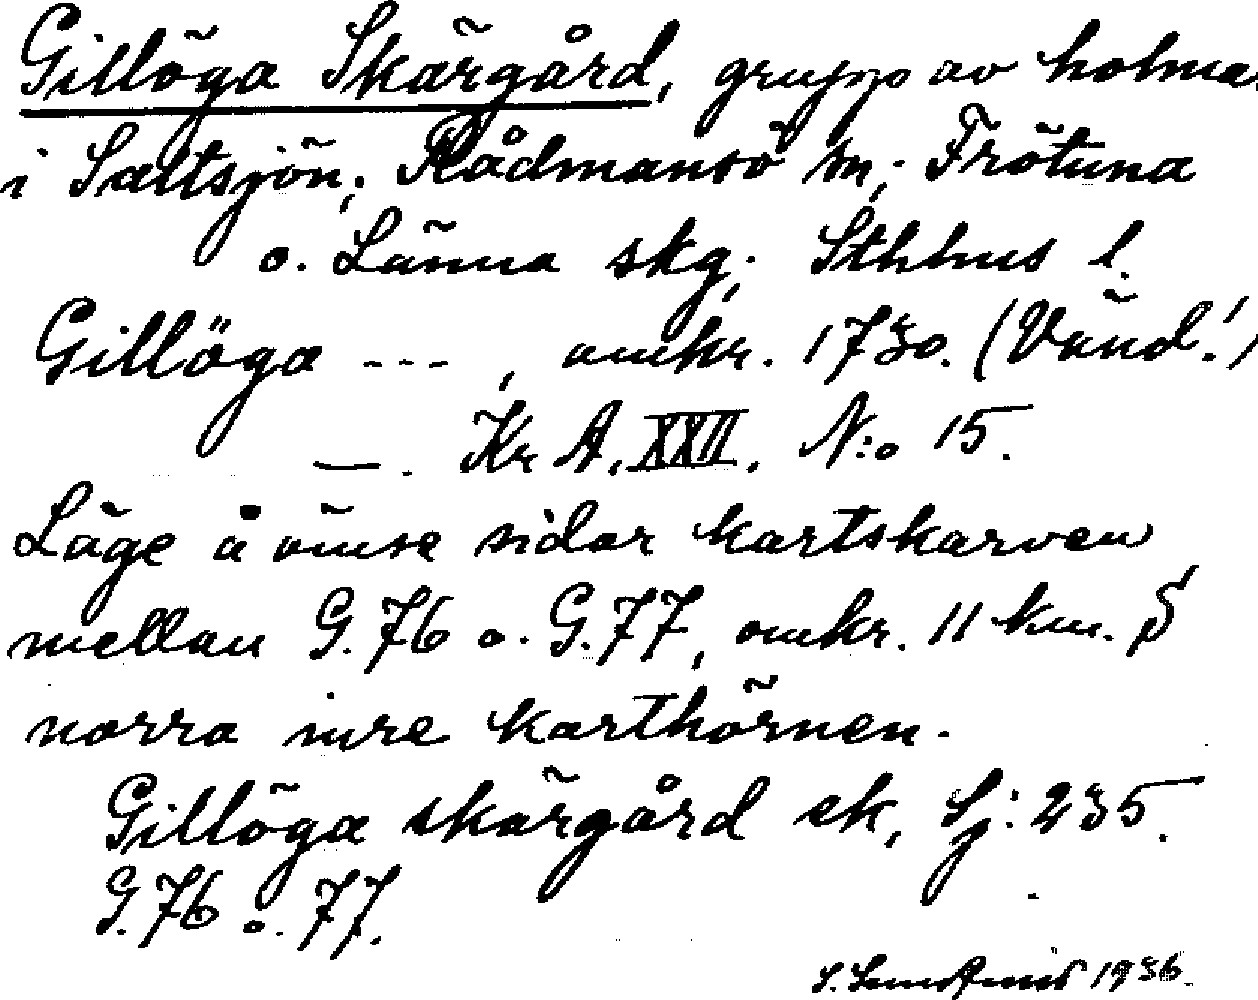 Gillöga Skärgård, grupp av holmar
i Saltsjön; Rådmansö sn; Frötuna
o. Länna skg; Sthlms l.
Gillöga ---, omkr. 1730. (Vänd!)
—. Kr A. XXII. N:o 15.
Läge å ömse sidor kartskarven
mellan G.76 o. G.77, omkr. 11 km. S
norra inre karthörnen.
Gillöga skärgård ek, Sj: 235.
G.76 o. 77.
1936